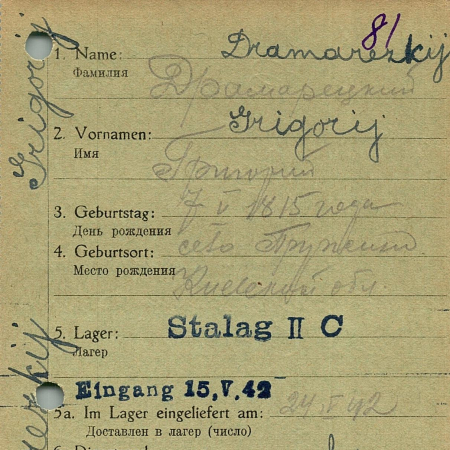 81
1. Name: Dramarezkij
Фамилия Драмарецкий
2. Vornamen: Grigorij
Имя Григорий
3. Geburtstag: 7 V 1815 года
День рождения
4. Geburtsort: село
Место рождения Киевской обл.
5. Lager: Stalag II C
Лагер
Eingang 15.V.42
5a. Im Lager eingeliefert am: 24 V 42
Доставлен в лагер (число)
Grigorij